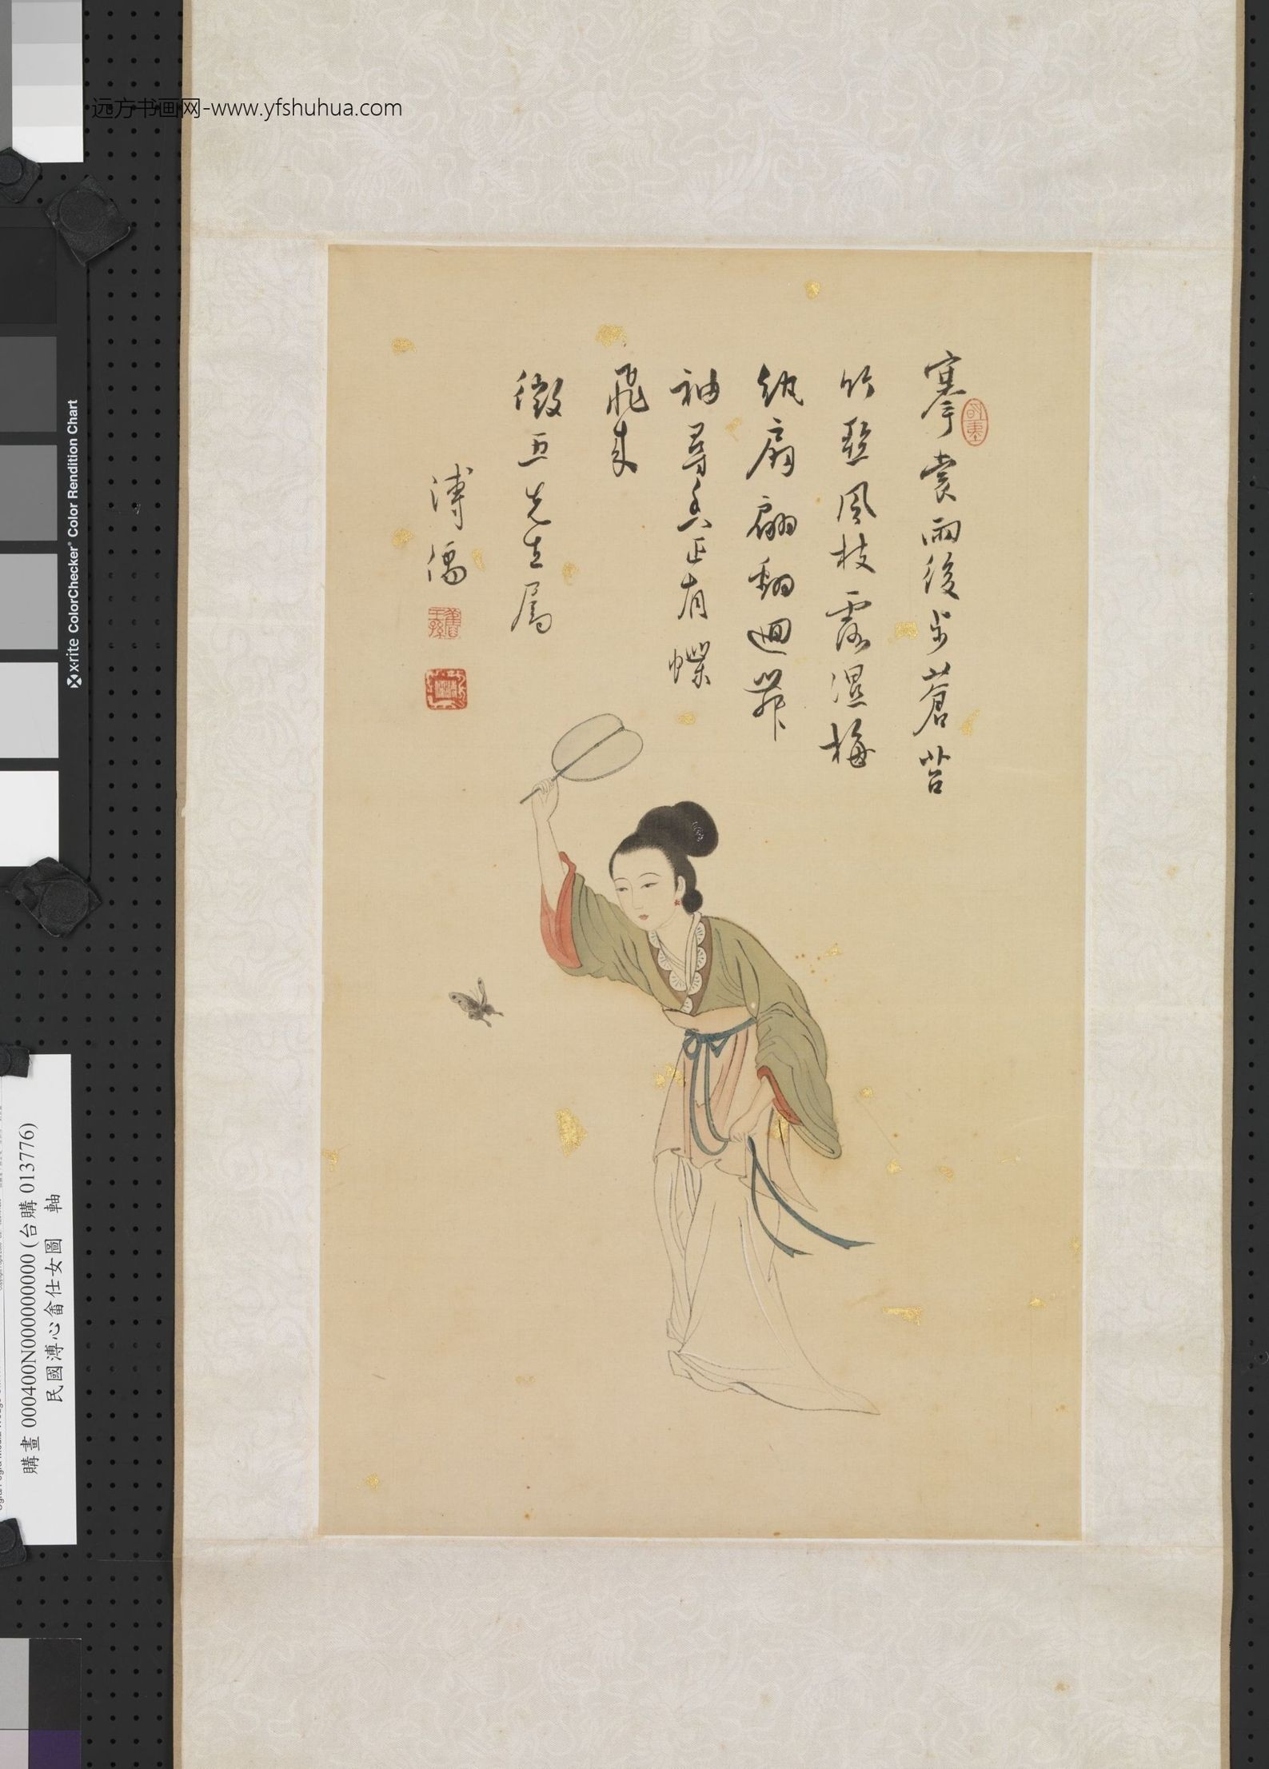 远方书画网-www.yfshuhua.com
搴裳雨後步蒼苔
竹壓風枝露濕梅
紈扇翩翻迴舞
袖尋香正有蝶
飛來
微五先生屬
溥儒
舊王孫
x·rite ColorChecker® Color Rendition Chart
購畫 000400N000000000 (台購 013776)
民國溥心畬仕女圖 軸